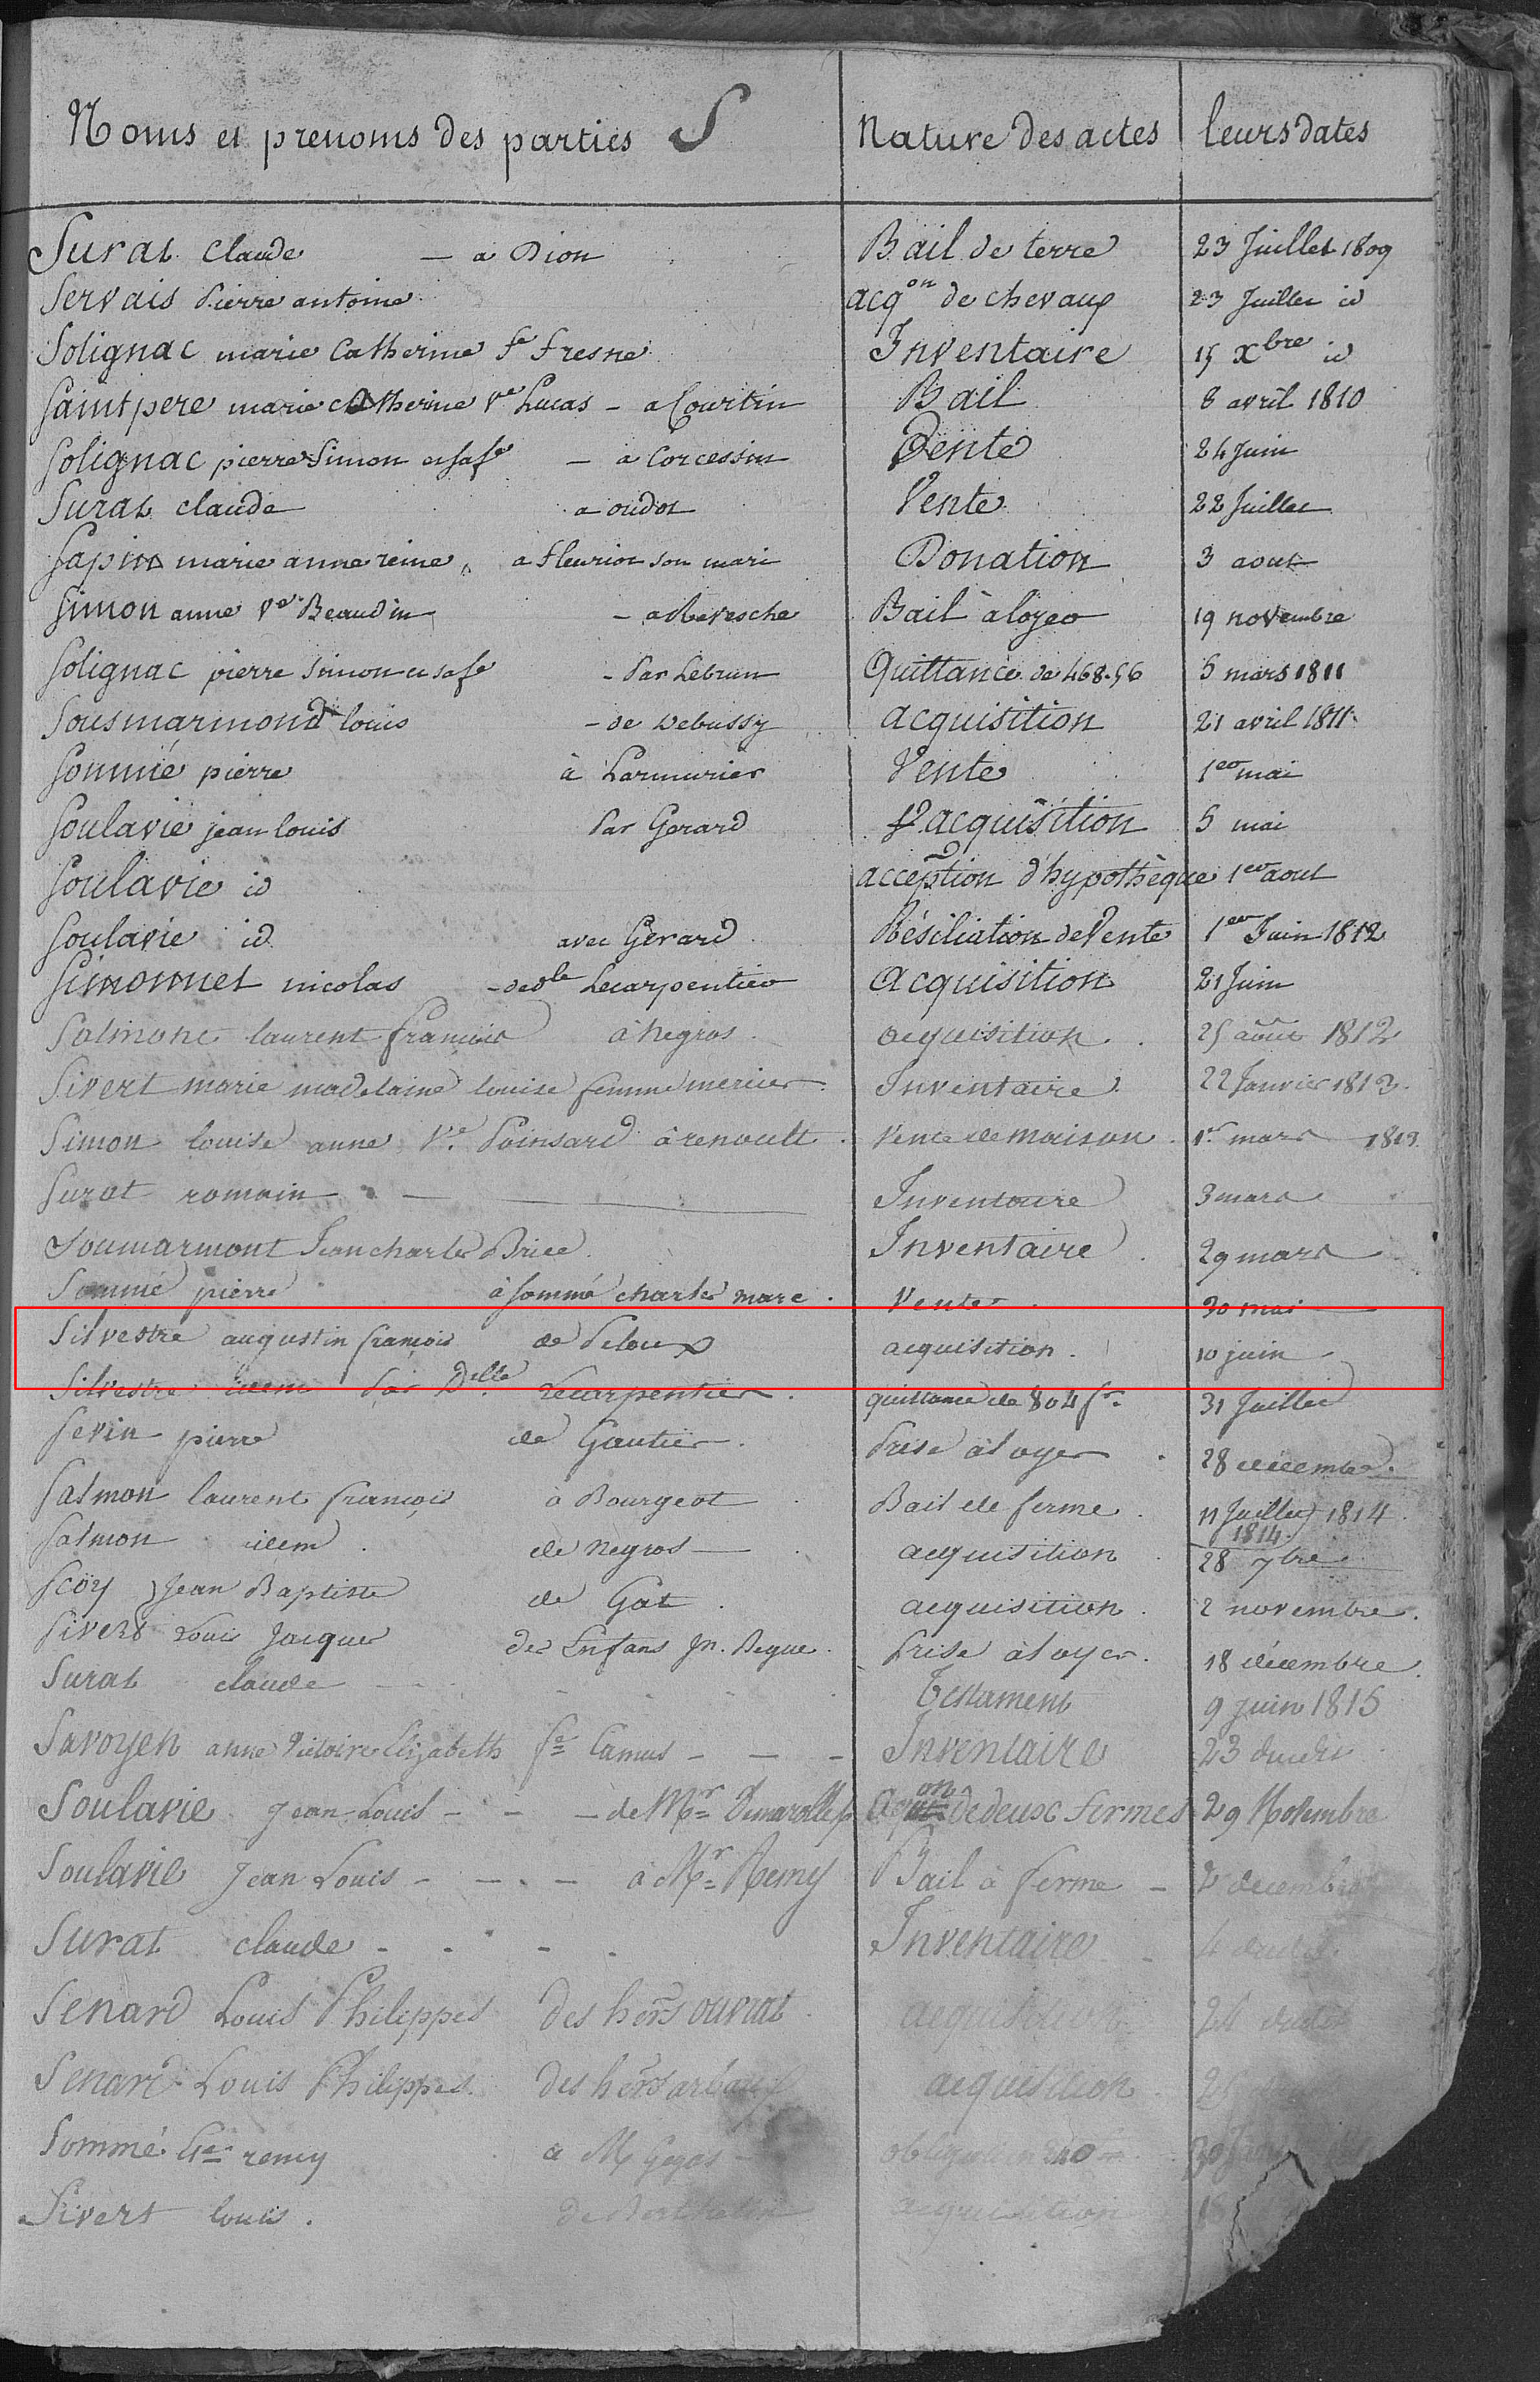 Noms et prenoms des parties S Nature des actes leurs dates
Surat Claude — a Dion Bail de terre 23 Juillet 1809
Servais Pierre antoine acqon de chevaux 23 Juillet id
Solignac marie Catherine fe fresne Inventaire 15 Xbre id
Saintpere marie catherine ve Lucas - a Courtin Bail 8 avril 1810
Solignac pierre Simon et sa fe — a Corcessin Vente 24 Juin
Surat claude a oudot Vente 22 Juillet
Sapin marie anne reine a fleuriot son mari Donation 3 aout
Simon anne Ve Beaudin - a Revesche Bail à loyer 19 novembre
Solignac pierre simon et sa fe - Par Lebrun Quittance de 468.56 5 mars 1811
Sousmarmond louis - de Debussy acquisition 21 avril 1811
Sommié pierre à Larmurier Vente 1er mai
Soulavie jean louis Par Gerard acquisition 5 mai
Soulavie id acception d'hypothèque 1er aout
Soulavie id avec Gerard Résiliation de Vente 1er Juin 1812
Simonnet nicolas - de dle Lecarpentier acquisition 21 Juin
Salmone laurent françois à negros acquisition 25 août 1812
Sivert marie madelaine louise femme mercier Inventaire 22 Janvier 1812
Simon louise anne Ve Poinsard à renoult Vente de maison 1er mars 1813
Surat romain — Inventaire 3 mars
Soumarmont Jean charles Brice Inventaire 29 mars
Sommié pierre à sommé charles marc Vente 30 mai
Silvestre augustin françois de Peloux acquisition 10 juin
Silvestre idem Par Delle Lecarpentier quittance de 804 fr. 31 Juillet
Sevin pierre de Gautier Prise à loyer 28 décembre
Salmon laurent françois à Bourgeot Bail de ferme 11 Juillet 1814
Salmon idem de negros acquisition 1814 28 7bre
Scoy Jean Baptiste de Gat acquisition 2 novembre
Sivert Louis Jacques des Enfans Jn. Begue Prise à loyer 18 décembre
Surat claude Testament 9 juin 1815
Savoyen anne Victoire Elizabeth fe Camus - - - Inventaire 23 dudit
Soulavie Jean Louis - - - de Mr Demarolles acqon de deux fermes 29 Novembre
Soulavie Jean Louis - - - à Mr Remy Bail à ferme - 2 decembre
Surat claude - - - - Inventaire 4 dudit
Senard Louis Philippes des hers ouvrat acquisition dudit
Senard Louis Philippes des hers acquisition
Sommé remy a
Sivert louis. acquisition 18